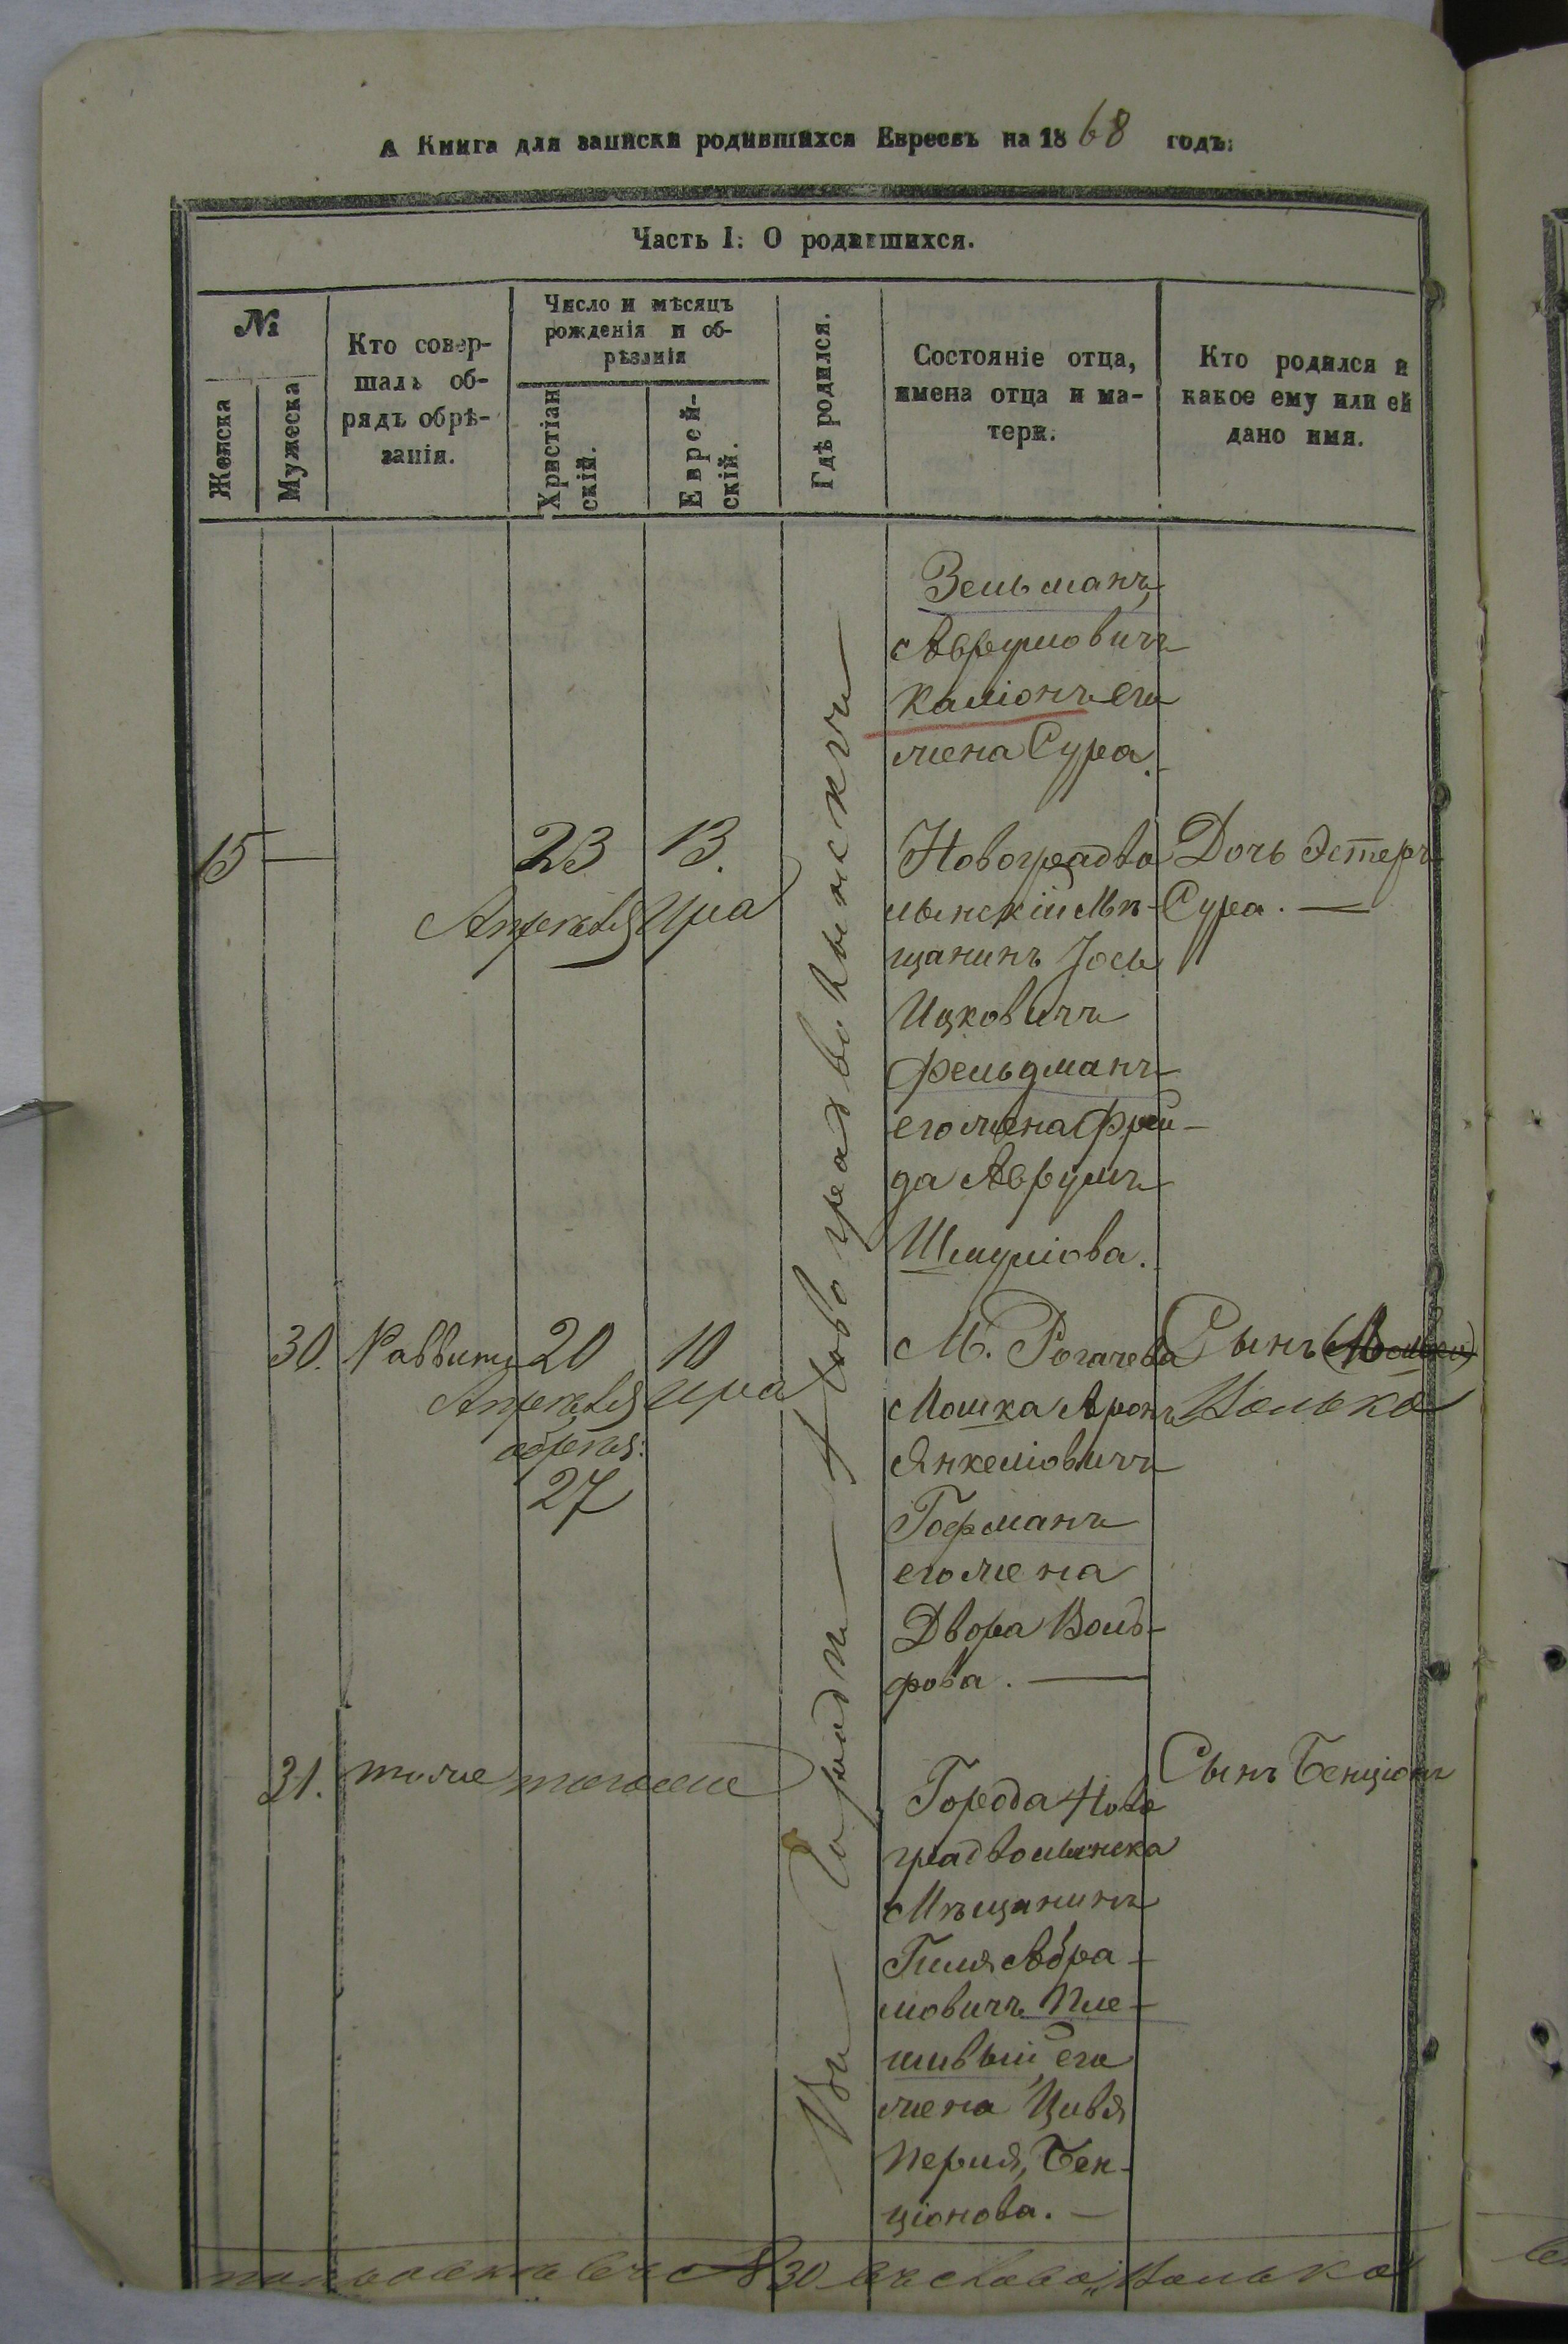 А Книга для записки родившихся Евреевъ на 1868 годъ:
Часть I: О родившихся.
№
Женска
Мужеска
Кто совер-
шалъ об-
рядъ обрѣ-
занія.
Число и мѣсяцъ
рожденія и об-
рѣзанія
Христіан
скій.
Еврей-
скій.
Гдѣ родился.
Состояніе отца,
имена отца и ма-
тери.
Кто родился и
какое ему или ей
дано имя.
Въ Городѣ Новоградволынскъ
Зельманъ
Аврумовичъ
Каліонъ его
жена Сура.
15 — 23 13.
Апрѣля Ира
Новоградво
лынскій Мѣ-
щанинъ Іось
Ицковичъ
Фельдманъ
его жена Фрей-
да Аврумъ
Шмуліова.
Дочь Эстеръ
Сура. —
30. Раввинъ 20 10
Апрѣля Ира
обрѣзан:
27
М. Рогачева
Мошка Аронъ
Янкеліовичъ
Гофманъ
его жена
Двора Воль-
фова. —
Сынъ
Волько
31. тоже тогоже
Города Ново
градволынска
Мѣщанинъ
Гиля Абра-
мовичъ Пле-
шивый его
жена Цивя
Перля, Бен-
ціонова. —
Сынъ Бенціонъ
въ № 30 въ слово „Волько"